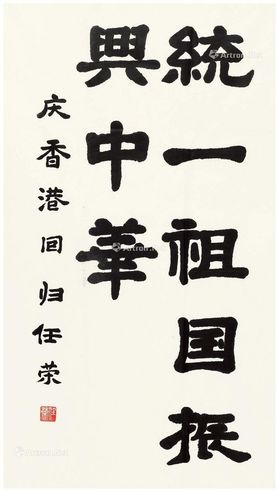 統一祖国振
興中華
庆香港回归任荣